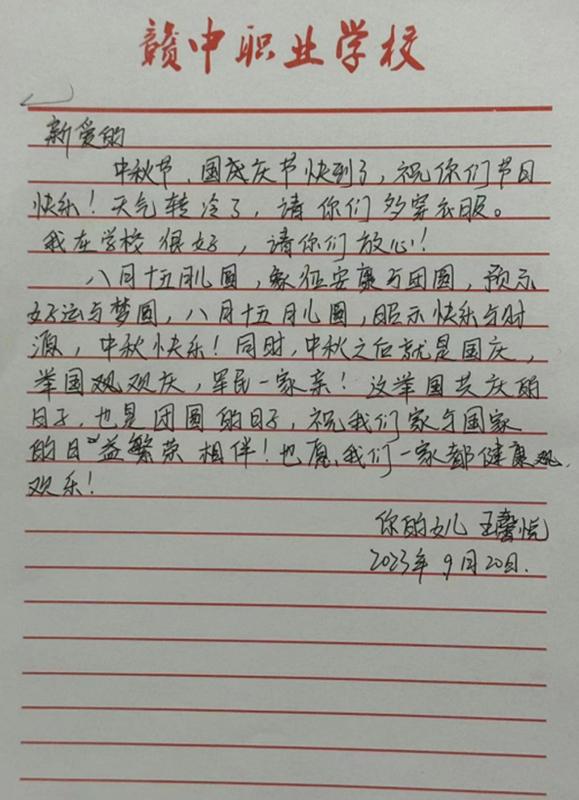 赣中职业学校
新爱的
中秋节、国庆节快到了，祝你们节日
快乐！天气转冷了，请你们多穿衣服。
我在学校很好，请你们放心！
八月十五月儿圆，象征安康与团圆，预示
好运与梦圆，八月十五月儿圆，昭示快乐与财
源，中秋快乐！同时，中秋之后就是国庆，
举国欢庆，军民一家亲！这举国共庆的
日子，也是团圆的日子，祝我们家与国家
的日益繁荣相伴！也愿我们一家都健康
欢乐！
你的女儿 王馨悦
2023年9月20日.